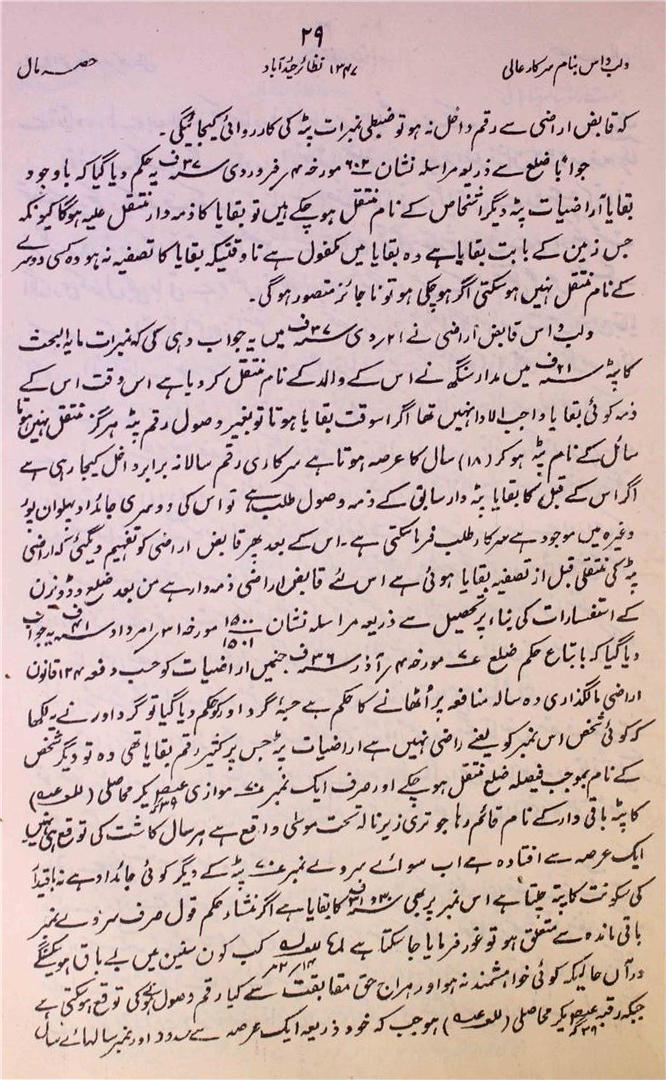 ۲۹
ولب داس بنام سرکار عالی ۱۳۴۷ نظائر حیدرآباد حصہ مال
کہ قابض اراضی سے رقم داخل نہ ہو تو ضبطی نمبرات پٹہ کی کارروائی کیجائیگی۔
جواباً ضلع سے ذریعہ مراسلہ نشان ۶۰۲ مورخہ ۴؍ فروردی ۳۷ ف یہ حکم دیا گیا کہ باوجود
بقایا اراضیات پٹہ دیگر اشخاص کے نام منتقل ہو چکے ہیں تو بقایا کا ذمہ دار منتقل علیہ ہوگا کیونکہ
جس زمین کے بابت بقایا ہے وہ بقایا میں مکفول ہے تا وقتیکہ بقایا کا تصفیہ نہ ہو وہ کسی دوسرے
کے نام منتقل نہیں ہو سکتی اگر ہو چکی ہو تو نا جائز متصور ہوگی۔
ولب داس قابض اراضی نے ۲۱؍ دی ۳۷ ف میں یہ جواب دہی کی کہ نمبرات مابہ البحث
کا پٹہ ۲۱ ف میں مدار سنگھ نے اس کے والد کے نام منتقل کر دیا ہے اس وقت اس کے
ذمہ کوئی بقایا واجب الادا نہیں تھا اگر اسوقت بقایا ہوتا تو بغیر وصول رقم پٹہ ہرگز منتقل نہیں ہوتا
سائل کے نام پٹہ ہو کر (۱۸) سال کا عرصہ ہوتا ہے سرکاری رقم سالانہ برابر داخل کیجا رہی ہے
اگر اس کے قبل کا بقایا پٹہ دار سابق کے ذمہ وصول طلب ہے تو اس کی دوسری جائداد پہلوان پور
وغیرہ میں موجود ہے سرکار طلب فرما سکتی ہے۔ اس کے بعد پھر قابض اراضی کو تفہیم دیگئی کہ اراضی
پٹہ کی منتقلی قبل از تصفیہ بقایا ہوئی ہے اس لئے قابض اراضی ذمہ دار ہے من بعد ضلع و ڈویژن
کے استفسارات کی بناء پر تحصیل سے ذریعہ مراسلہ نشان ۱۵۰۰/۱۵۰۱ مورخہ ۳۱؍ امرداد ۴۱ ف یہ جواب
دیا گیا کہ باتباع حکم ضلع ۷ مورخہ ۴؍ آذر ۳۶ ف جنمیں اراضیات کو حسب دفعہ ۱۲۴ قانون
اراضی مالگذاری دہ سالہ منافعہ پر اٹھانے کا حکم ہے گرداور کو حکم دیا گیا تو گرداور نے لکھا
کہ کوئی شخص اس نمبر کو لینے راضی نہیں ہے اراضیات پٹہ جس پر کثیر رقم بقایا تھی وہ تو دیگر شخص
کے نام بموجب فیصلہ ضلع منتقل ہو چکے اور صرف ایک نمبر ۷۰ موازی ایکر محاصلی
کا پٹہ باقی دار کے نام قائم رہا جو تری زیر نالہ تحت موسی واقع ہے ہر سال کاشت کی توقع ہی نہیں
ایک عرصہ سے افتادہ ہے اب سوائے سروے نمبر ۷۰ پٹہ کے دیگر کوئی جائداد ہے نہ باقیدار
کی سکونت کا پتہ چلتا ہے اس نمبر پر بھی ۳۰ و ۳۱ ف کا بقایا ہے اگر منشاء حکم قول صرف سروے نمبر
باقی ماندہ سے متعلق ہو تو غور فرمایا جا سکتا ہے کب کون سنین میں بے باق ہو سکینگے
درآں حالیکہ کوئی خواہشمند نہ ہو اور ہراج حق مقابضت سے کیا رقم وصول ہونیکی توقع ہو سکتی ہے
جبکہ رقبہ ایکر محاصلی ہو جب کہ خود ذریعہ ایک عرصہ سے مسدود اور نمبر سالہائے سال